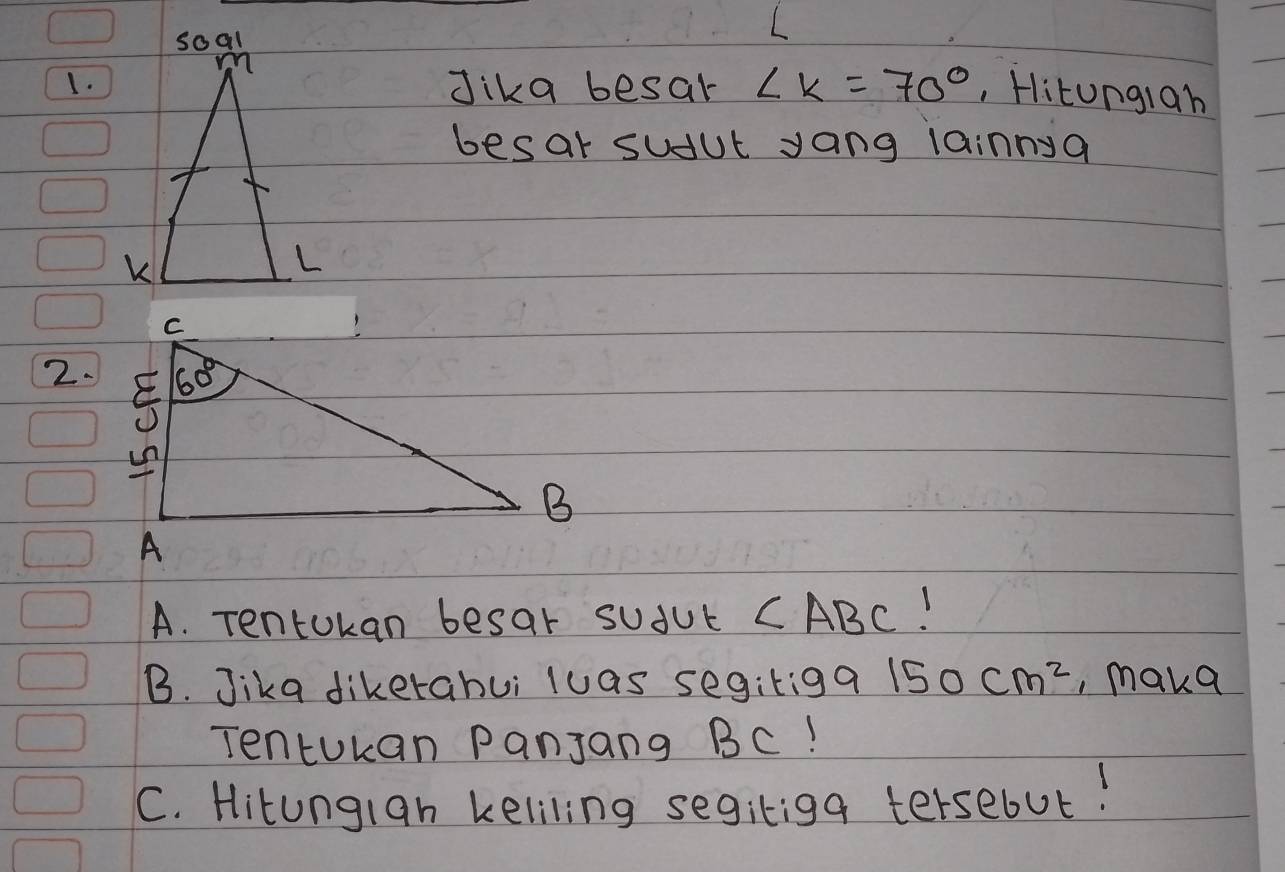 soal
1.
m
Jika besar ∠K = 70°, Hitunglah
besar sudut yang lainnya
K
L
2.
C
60°
15 cm
B
A
A. Tentukan besar sudut <ABC!
B. Jika diketahui luas segitiga 150 cm², maka
Tentukan Panjang BC!
C. Hitunglah keliling segitiga tersebut!